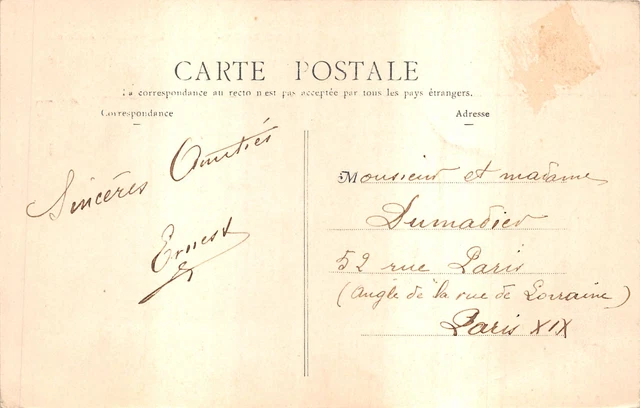 CARTE POSTALE
La correspondance au recto n'est pas acceptée par tous les pays étrangers.
Correspondance
Adresse
Sincères Amitiés
Ernest
Monsieur et madame
Dumadier
52 rue Paris
(Angle de la rue de Lorraine)
Paris XIX